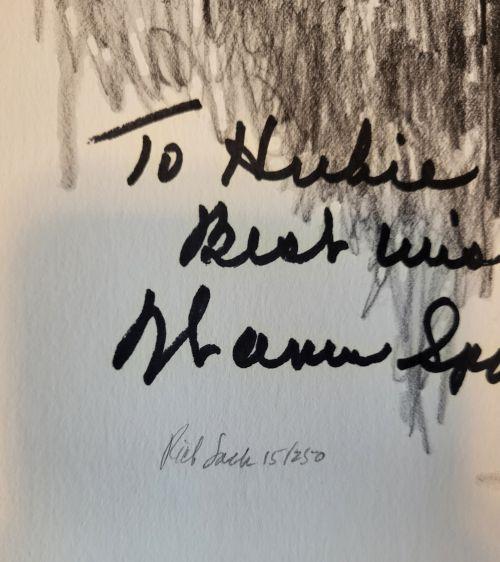 To Hubie
Best wis
Warren Spa
Rich Sack 15/250